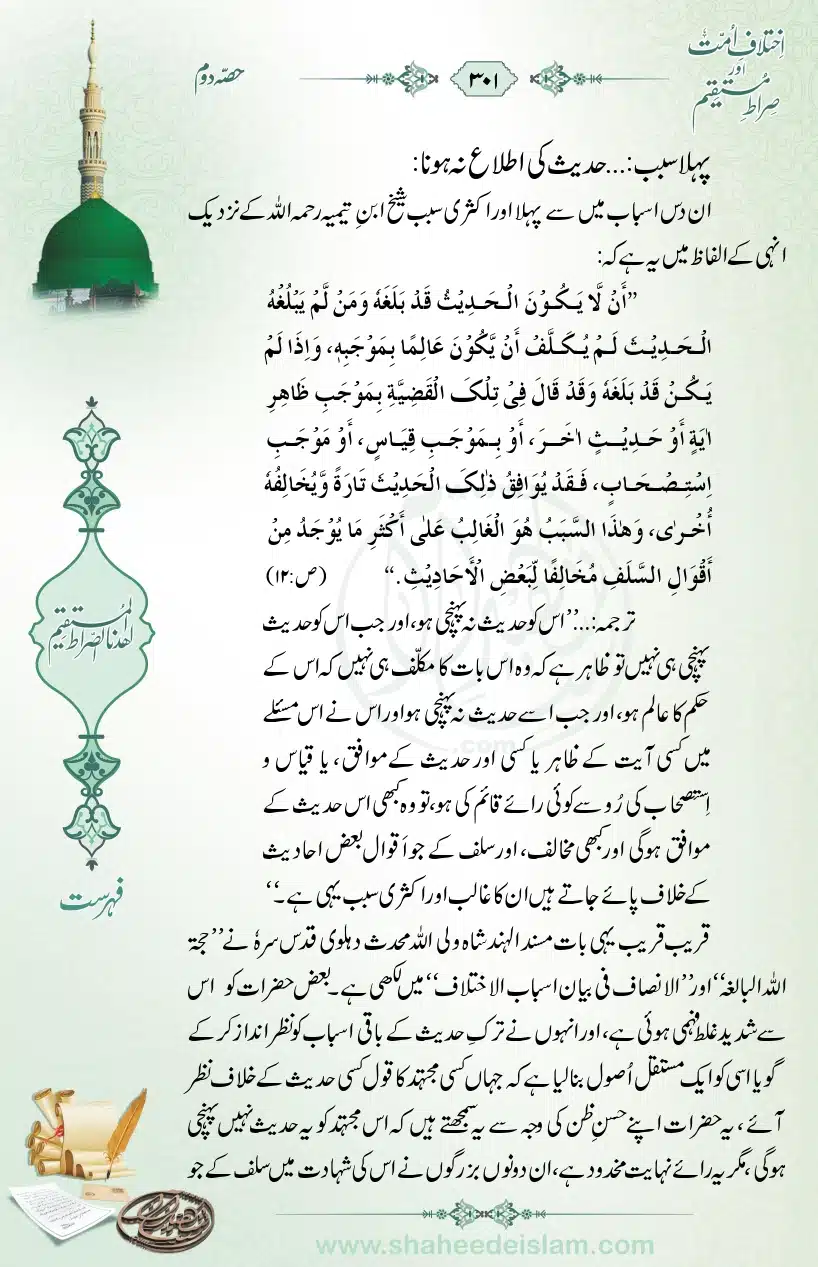 اِختلافِ اُمّت
اور
صِراطِ مُستقیم
۳۰۱
حصّہ دوم
پہلا سبب:... حدیث کی اطلاع نہ ہونا:
ان دس اسباب میں سے پہلا اور اکثری سبب شیخ ابنِ تیمیہ رحمہ اللہ کے نزدیک
انہی کے الفاظ میں یہ ہے کہ:
”أَنْ لَّا يَكُوْنَ الْحَدِيْثُ قَدْ بَلَغَهٗ وَمَنْ لَّمْ يَبْلُغْهُ
الْحَدِيْثَ لَمْ يُكَلَّفْ أَنْ يَّكُوْنَ عَالِمًا بِمَوْجَبِهٖ، وَإِذَا لَمْ
يَكُنْ قَدْ بَلَغَهٗ وَقَدْ قَالَ فِىْ تِلْكَ الْقَضِيَّةِ بِمَوْجَبِ ظَاهِرِ
اٰيَةٍ أَوْ حَدِيْثٍ اٰخَرَ، أَوْ بِمَوْجَبِ قِيَاسٍ، أَوْ مَوْجَبِ
اِسْتِصْحَابٍ، فَقَدْ يُوَافِقُ ذٰلِكَ الْحَدِيْثَ تَارَةً وَّيُخَالِفُهٗ
أُخْرٰى، وَهٰذَا السَّبَبُ هُوَ الْغَالِبُ عَلٰى أَكْثَرِ مَا يُوْجَدُ مِنْ
أَقْوَالِ السَّلَفِ مُخَالِفًا لِّبَعْضِ الْأَحَادِيْثِ.“ (ص:۱۲)
ترجمہ:...”اس کو حدیث نہ پہنچی ہو، اور جب اس کو حدیث
پہنچی ہی نہیں تو ظاہر ہے کہ وہ اس بات کا مکلّف ہی نہیں کہ اس کے
حکم کا عالم ہو، اور جب اسے حدیث نہ پہنچی ہو اور اس نے اس مسئلے
میں کسی آیت کے ظاہر یا کسی اور حدیث کے موافق، یا قیاس و
اِستصحاب کی رُو سے کوئی رائے قائم کی ہو، تو وہ کبھی اس حدیث کے
موافق ہوگی اور کبھی مخالف، اور سلف کے جو اَقوال بعض احادیث
کے خلاف پائے جاتے ہیں ان کا غالب اور اکثری سبب یہی ہے۔“
قریب قریب یہی بات مسند الہند شاہ ولی اللہ محدث دہلوی قدس سرہٗ نے ”حجۃ
اللہ البالغہ“ اور ”الانصاف فی بیان اسباب الاختلاف“ میں لکھی ہے۔ بعض حضرات کو اس
سے شدید غلط فہمی ہوئی ہے، اور انہوں نے ترکِ حدیث کے باقی اسباب کو نظر انداز کر کے
گویا اسی کو ایک مستقل اُصول بنالیا ہے کہ جہاں کسی مجتہد کا قول کسی حدیث کے خلاف نظر
آئے، یہ حضرات اپنے حسنِ ظن کی وجہ سے یہ سمجھتے ہیں کہ اس مجتہد کو یہ حدیث نہیں پہنچی
ہوگی، مگر یہ رائے نہایت مخدود ہے، ان دونوں بزرگوں نے اس کی شہادت میں سلف کے جو
اھدنا الصراط المستقیم
فہرست
www.shaheedeislam.com